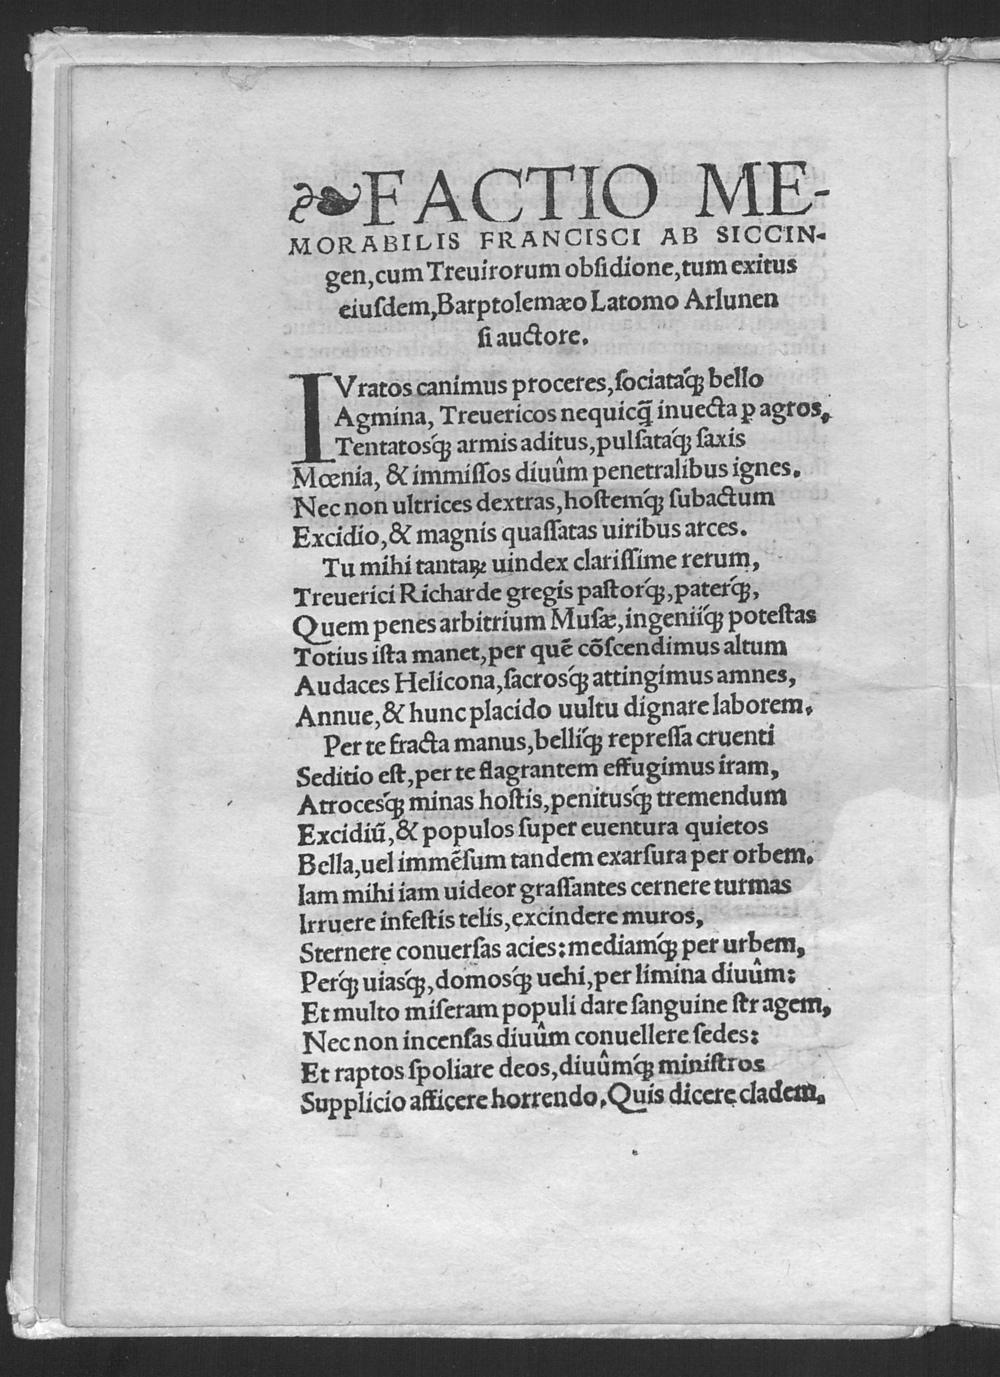 ❧FACTIO ME-
MORABILIS FRANCISCI AB SICCIN-
gen, cum Treuirorum obſidione, tum exitus
eiuſdem, Barptolemæo Latomo Arlunen
ſi auctore.
IVratos canimus proceres, ſociatáq́; bello
Agmina, Treuericos nequicq̃ inuecta ꝑ agros,
Tentatosq́; armis aditus, pulſatáq́; ſaxis
Mœnia, & immiſſos diuûm penetralibus ignes.
Nec non ultrices dextras, hoſtemq́; ſubactum
Excidio, & magnis quaſſatas uiribus arces.
Tu mihi tantaꝝ uindex clariſſime rerum,
Treuerici Richarde gregis paſtorq́;, paterq́;,
Quem penes arbitrium Muſæ, ingeniiq́; poteſtas
Totius iſta manet, per quē cōſcendimus altum
Audaces Helicona, ſacrosq́; attingimus amnes,
Annue, & hunc placido uultu dignare laborem.
Per te fracta manus, belliq́; repreſſa cruenti
Seditio eſt, per te flagrantem effugimus iram,
Atrocesq́; minas hoſtis, penitusq́; tremendum
Excidiū, & populos ſuper euentura quietos
Bella, uel immēſum tandem exarſura per orbem.
Iam mihi iam uideor graſſantes cernere turmas
Irruere infeſtis telis, excindere muros,
Sternere conuerſas acies: mediamq́; per urbem,
Perq́; uiasq́;, domosq́; uehi, per limina diuûm:
Et multo miſeram populi dare ſanguine ſtragem,
Nec non incenſas diuûm conuellere ſedes:
Et raptos ſpoliare deos, diuûmq́; miniſtros
Supplicio afficere horrendo, Quis dicere cladem,